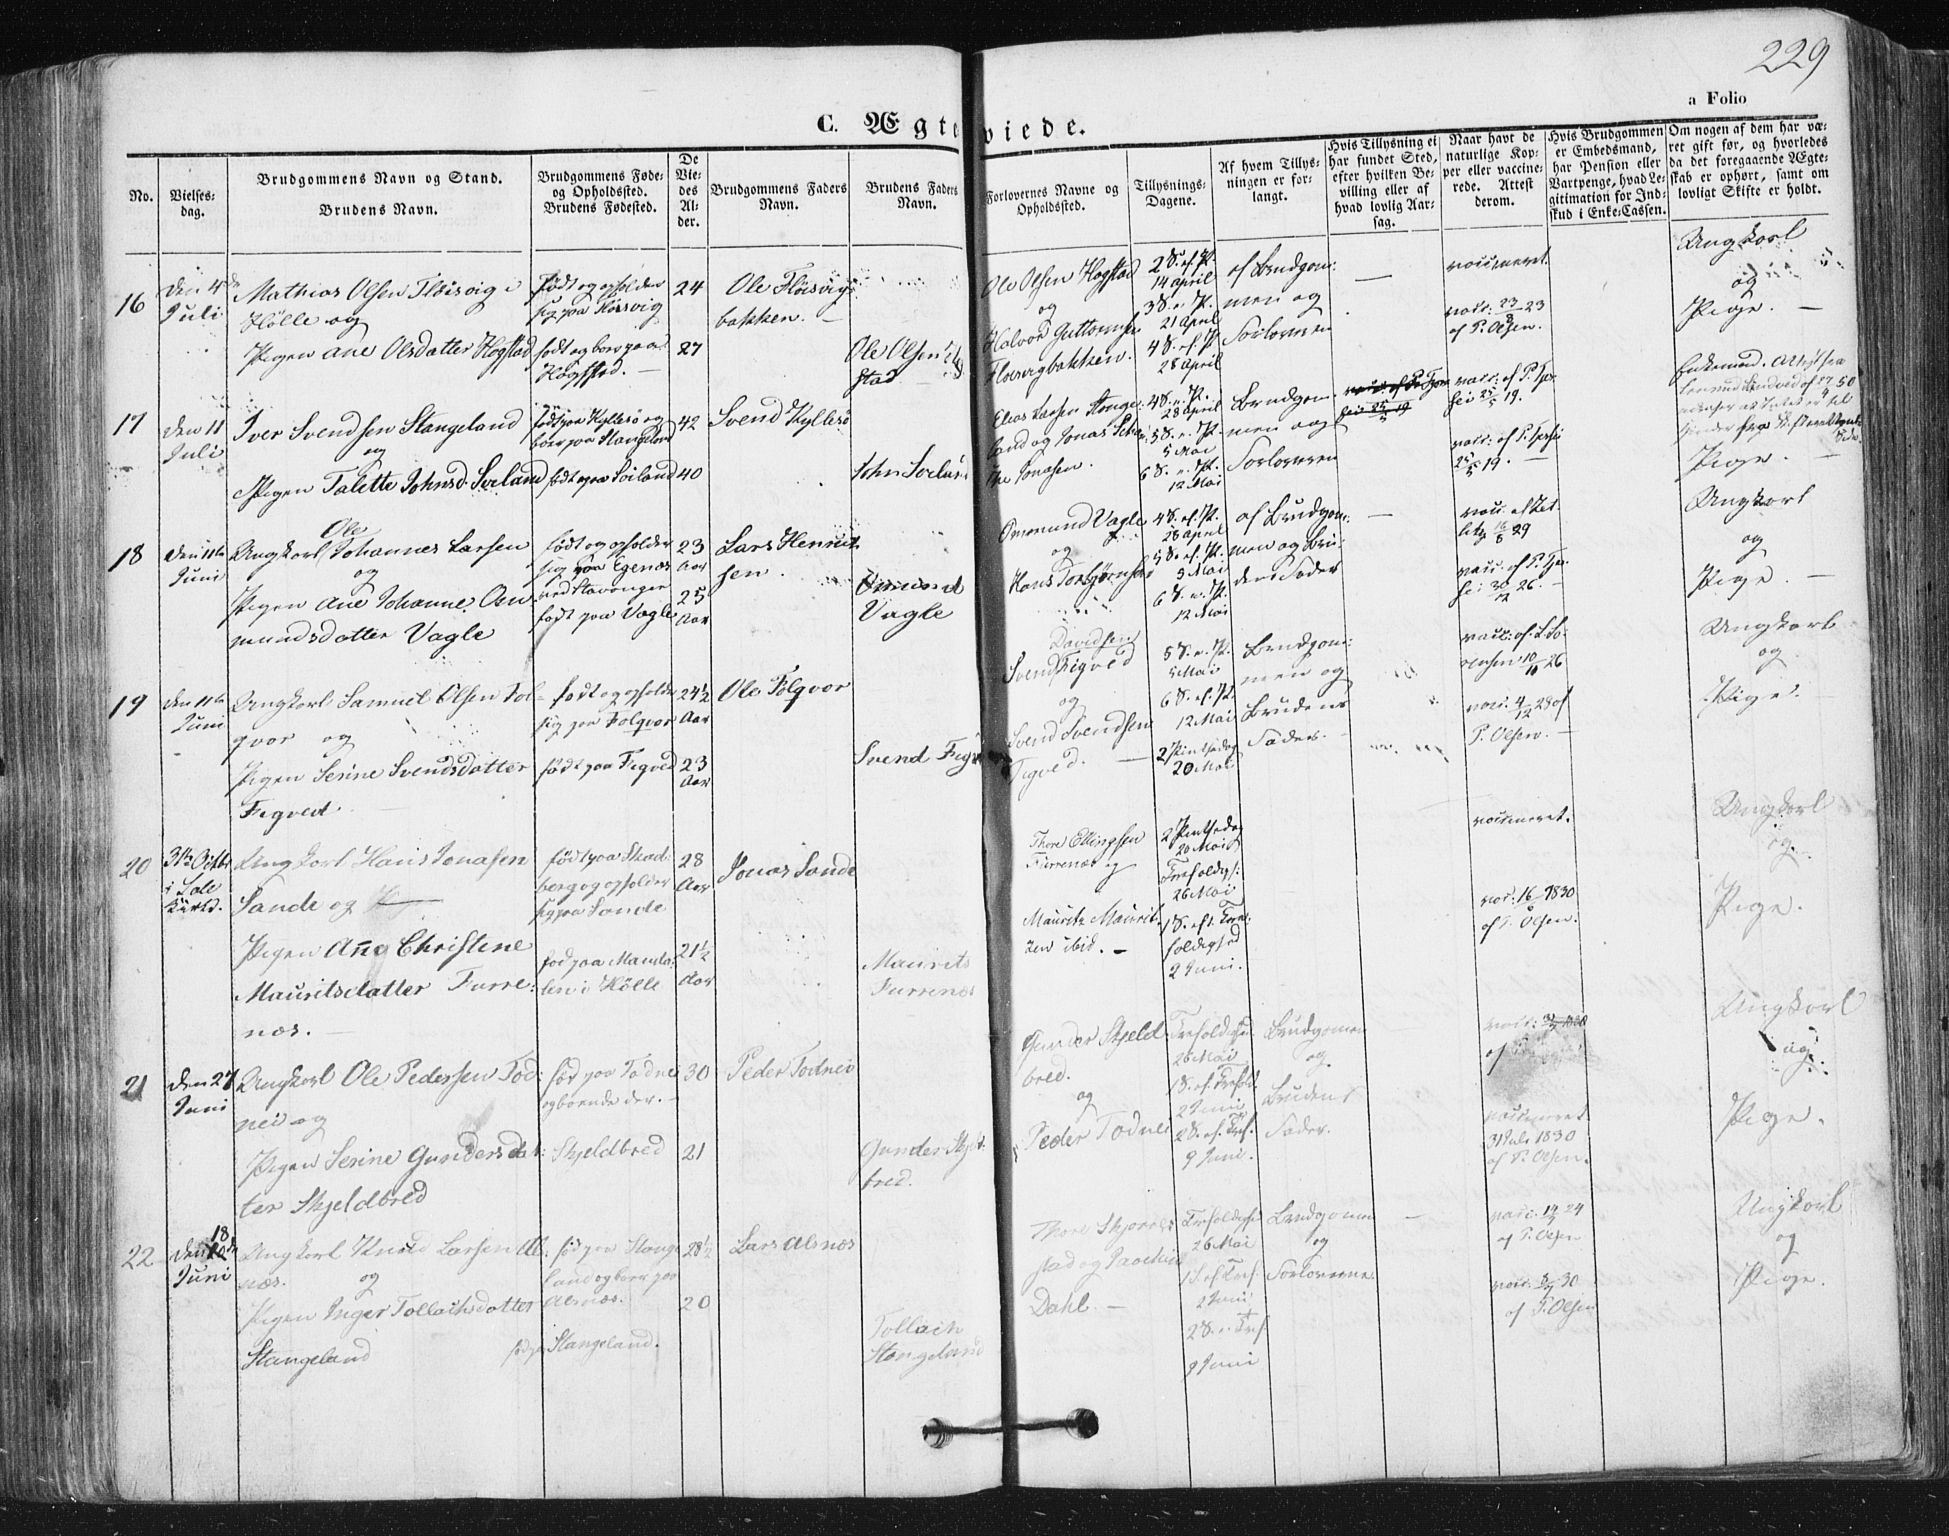 229
a Folio
C. Ægteviede.
No.
Vielses-
dag.
Brudgommens Navn og Stand.
Brudens Navn.
Brudgommens Føde-
og Opholdssted.
Brudens Fødested.
De
Vie-
des
Al-
der.
Brudgommens Faders
Navn.
Brudens Faders
Navn.
Forlovernes Navne og
Opholdssted.
Tillysnings-
Dagene.
Af hvem Tillys-
ningen er for-
langt.
Hvis Tillysning ei
har fundet Sted,
efter hvilken Be-
villing eller af
hvad lovlig Aar-
sag.
Naar havt de
naturlige Kop-
per eller vaccine-
rede. Attest
derom.
Hvis Brudgommen
er Embedsmand,
har Pension eller
Vartpenge, hvad Le-
gitimation for Ind-
skud i Enke-Cassen.
Om nogen af dem har væ-
ret gift før, og hvorledes
da det foregaaende Ægte-
skab er ophørt, samt om
lovligt Skifte er holdt.
16
Den 4de
Juli
Mathias Olsen Fløisvig i
Hølle og
Pigen Ane Olsdatter Hogstad
født og opholder
sig paa Fløisvig
født og boer paa
Hogstad.
24
27
Ole Fløisvig
bakken.
Ole Olsen Hog
stad
Ole Olsen Hogstad
og
Halvor Guttormsen
Fløisvigbakken.
2 S. ef. P.
14 April
3 S. e. P.
21 April
4 S. ef. P.
28 April
af Brudgom-
men og
Forloveren
vaccineret.
vacc. 23/8 23
af P. Olsen.
Ungkarl
og
Pige.
17
Den 11
Juli
Iver Svendsen Stangeland
og
Pigen Talette Johnsd. Soeland
født paa Kyllesø og
boer paa Stangeland
født paa Soiland
42
40
Svend Kyllesø
John Soeland
Elias Larsen Stange-
land og Jonas
Jonasen.
4 S. e. P.
28 April
5 S. e. P.
5 Mai
6 S. e. P.
12 Mai
Brudgom-
men og
Forloveren
vacc. af P.
25/5 19.
vacc. af P.
25/5 19.
Enkemand. Attest fra
Pige.
18
Den 11te
Juni
Ole
Ungkarl Johannes Larsen
og
Pigen Ane Johanne Os-
mundsdatter Vagle
født og opholder
sig paa Egenæs
ved Stavanger
født paa Vagle
23
Aar
25
Aar
Lars Henrik
sen.
Osmund
Vagle
Osmund Vagle
og
Hans Torbjørnsen
4 S. ef. P.
28 April
5 S. ef. P.
5 Mai
6 S. e. P.
12 Mai
af Brudgom-
men og Bru-
dens Fader
vacc. af
16/8 29
vacc. af P.
30/12 26.
Ungkarl
og
Pige.
19
Den 11te
Juni
Ungkarl Samuel Olsen Fol-
qvor og
Pigen Serine Svendsdatter
Figved
født og opholder
sig paa Folqvor
født paa Figved
24½
Aar
23
Aar
Ole Folqvor
Svend Figved
Davidsen
Svend Figved
og
Svend Svendsen
Figved.
5 S. e. P.
5 Mai
6 S. ef. P.
12 Mai
2 Pintsedag
20 Mai
Brudgom-
men og
Brudens
Fader.
vacc. af L. So-
rensen 10/10 26
vacc. 4/12 28 af
P. Olsen.
Ungkarl
og
Pige.
20
31te Octbr
i Sole
Kirke.
Ungkarl Hans Jonasen
Sande og
Pigen Ane Christine
Mauritsdatter Furre-
næs.
født paa Skad-
berg og opholder
sig paa Sande
fød paa Manda-
len i Hølle
28
Aar
21½
Aar
Jonas Sande
Maurits
Furrenæs
Thore Ellingsen
Furrenæs og
Maurits Maurit-
zen ibid.
2 Pintsedag
20 Mai
Trefoldigh.
26 Mai
1 S. ef. Tre-
foldighed
2 Juni.
vaccineret.
vac. 16/6 1830
af P. Olsen.
Ungkarl
og
Pige.
21
Den 27
Juni
Ungkarl Ole Pedersen Tod-
nei og
Pigen Serine Gundersdat-
ter Skjeldbred
fød paa Todnei
og boende der.
Skjeldbred
30
21
Peder Todnei
Gunder Skjeld-
bred.
Gunder Skjeld-
bred.
og
Peder Todnei
Trefoldighed
26 Mai
1 S. ef. Trefold.
2 Juni
2 S. ef. Tref.
9 Juni.
Brudgommen
og
Brudens
Fader.
vaccineret
31 Juli 1830
af P. Olsen.
Ungkarl
og
Pige.
22
18
Den
Juni
Ungkarl Knud Larsen Al-
næs. og
Pigen Inger Tollachsdatter
Stangeland
fød paa Stange-
land og boer paa
Alsnæs.
fød paa Stangeland.
28½
20
Lars Alsnæs
Tollach
Stangeland
Thore Skjorre-
stad og
Dahl.
Trefoldighed
26 Mai
1 S. ef. Tref.
2 Juni
2 S. e. Tref.
9 Juni
Brudgommen
og
Forloverne.
vacc. 14/7 24
af P. Olsen
vacc. 8/7 30
af P. Olsen
Ungkarl
og
Pige.